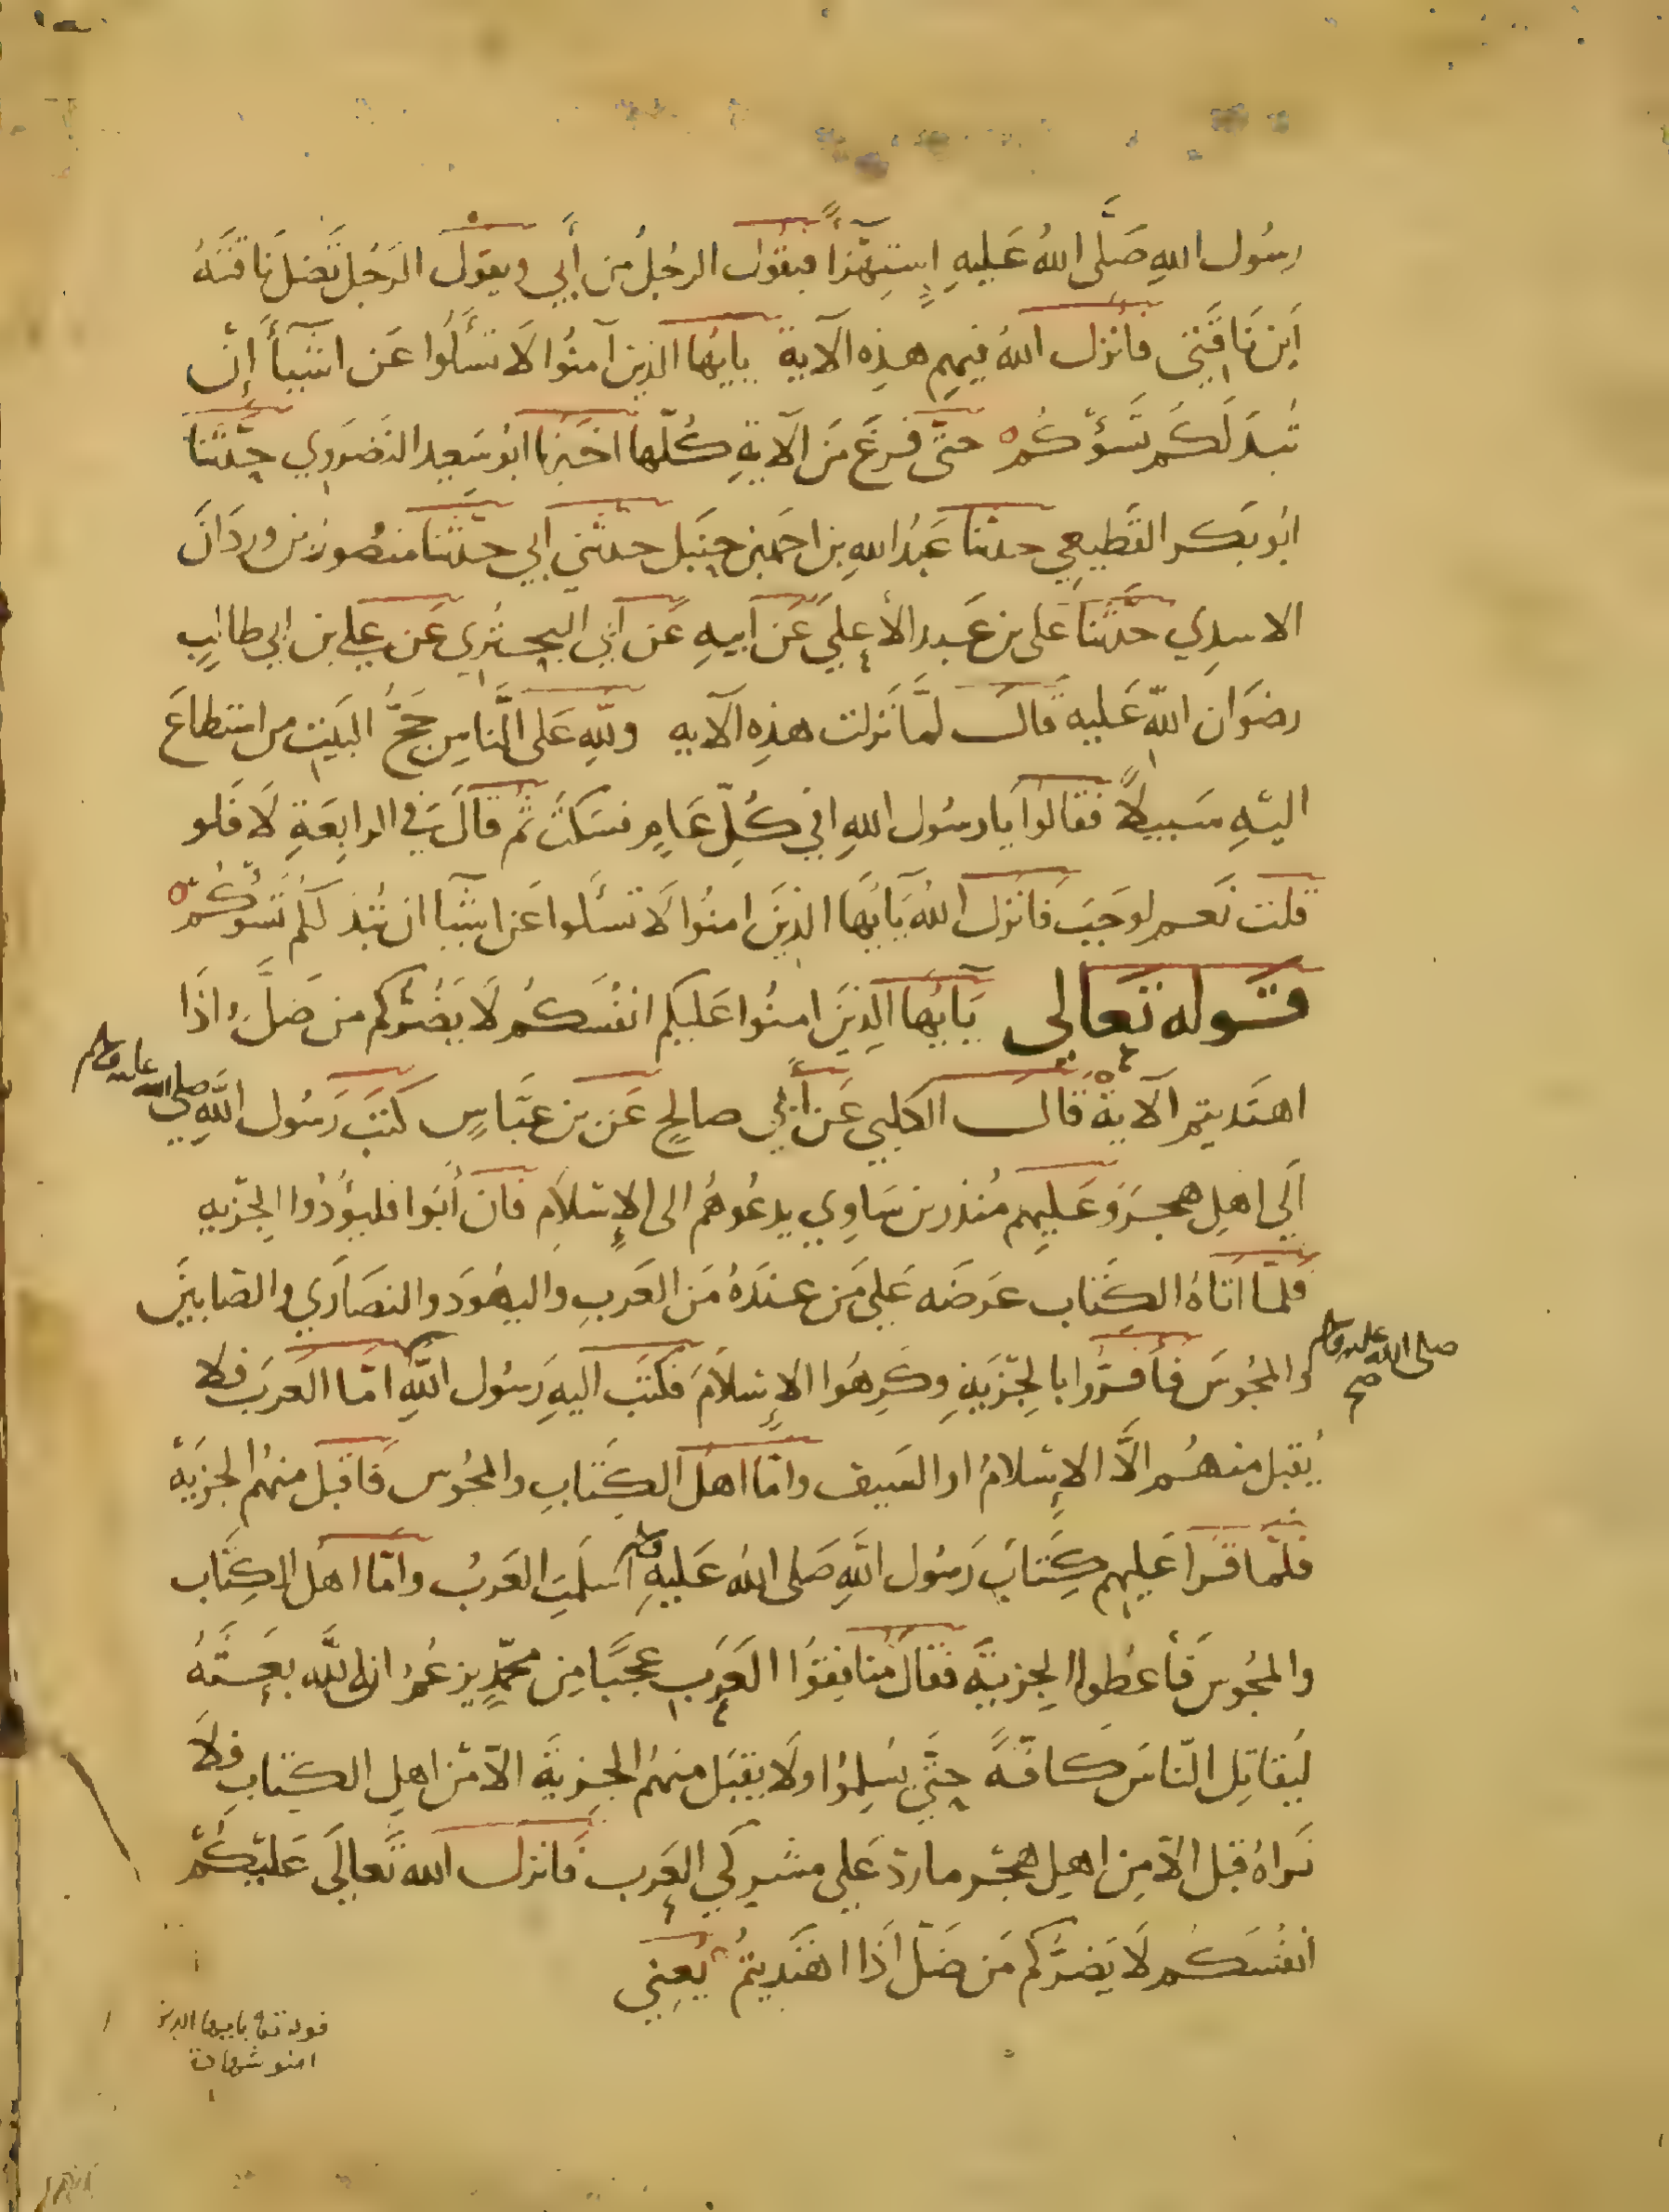 رسُول اللهِ صَلَّى اللهُ عَليهِ اِستِهزأً فيقُول الرجُلُ من أبي ويقول الرَجُل تَضل نَاقتَهُ
اَين نَاقَتِي فانزل اللهُ فيهم هذِه الآية يايُها الذين آمنُوا لَا تسْألُوا عَن اشيآأَ إن
تُبدَ لَكُم تَسُؤكُم حتّى فرغَ مَن الآيةِ كُلّها اخبَرنا ابُو سَعِيد النَضرَوي حدّثنا
ابُو بَكر القَطِيعِي حدثنا عَبدُ اللهِ بن احمَد بن حنبَل حدثني ابي حدثنا منصُور بن وردَانَ
الاسدِي حدَّثنا عَلى بن عَبد الأعلي عَن ابيهِ عَن ابي البحتري عَن علي بن ابي طالبٍ
رضوَان اللّهِ عَليه قال لمَّا نَزلت هذِه الآيه وللهِ عَلى النَّاسِ حَجُّ البَيتِ من استطاعَ
اليهِ سَبيلاً فقالُوا يا رسُول اللهِ افي كُلّ عَامٍ فسَكَتَ ثم قالَ في الرابعَةِ لَا فلو
قلت نَعم لوجَبَ فانزل اللهُ يَايُّها الذينَ امنُوا لَا تسئَلوا عَن اشيآ ان تُبْد لكم تَسُؤكُم
قوله تعالى يَايُها الذِينَ امنُوا عَليكم انفُسَكُم لَا يَضُرّكم من ضَلَّ اذَا
اهتَديتم الآية قال الكلبي عَن أبي صالحٍ عَن بن عبَّاسٍ كتبَ رَسُول اللهِ صلى الله عليه وسلم
اَلي اهلِ هجَر وَعَليهِم مُنذر بن سَاوِي يدعُوهُم الى الإسلاَم فان أبَوا فليُؤدُوا الجِزيه
فلمّا اتاهُ الكِتاب عرَضَه عَلي مَن عندَهُ مَن العَربِ واليهُودَ والنصَارَي والصابينَ
والمجُوسَ فأقرُّوا بالجِزيَةِ وكَرِهُوا الإسلاَمَ فكتَب اليهِ رَسُول اللهِ صلى الله عليه وسلم صح امّا العَربَ فلا
يُقبل منهُم الَّا الإسلامُ او السَيف وامّا اهلُ الكِتابِ والمجُوس فاقبل منهُم الجزيَة
فلمّا قرا عَليهم كِتابَ رَسُول اللهِ صَلى اللهُ عَليهِ وسلم اسلَمتِ العَربُ وامَّا اهلُ الكِتاب
والمجُوسَ فَأعطوا الجِزيَة فقال مُنافِقُوا العَرَبِ عجبًا مِن محمّدٍ يزعمُ ان اللّه بعَثَهُ
ليُقاتِل النّاسَ كافّةً حتَّي يُسلِمُوا ولَا يقبَل منهُم الجِزيَة الّا مَن اهلِ الكتابِ فلَا
نَراهُ قبل الّا مِن اهلِ هجَر ما ردّ عَلي مشركي العَرب فانزل الله تَعالَي عَليكُم
أنفُسَكُم لَا يَضرُّكم مَن ضلّ اذَا اهتَديتُم يَعنِي
قوله تع يايها الذين
امنو شهادة